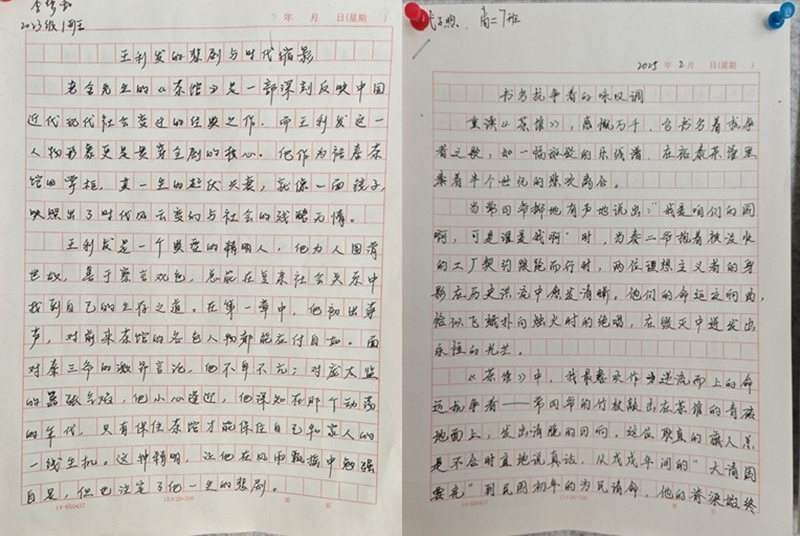 2023级1班
年 月 日(星期 )
王利发的悲剧与时代缩影
老舍先生的《茶馆》是一部深刻反映中国
近代现代社会变迁的经典之作，而王利发这一
人物形象更是贯穿全剧的核心。他作为裕泰茶
馆的掌柜，其一生的起伏兴衰，就像一面镜子，
映照出了时代风云变幻与社会的残酷无情。
王利发是一个典型的精明人，他为人圆滑
世故，善于察言观色，总能在复杂社会关系中
找到自己的生存之道。在第一幕中，他初出茶
声，对前来茶馆的各色人物都能应付自如。面
对秦二爷的激昂言论，他不卑不亢；对庞太监
的嚣张气焰，他小心逢迎，他深知在那个动荡
的年代，只有保住茶馆才能保住自己和家人的
一线生机。这种精明，让他在风雨飘摇中勉强
自足，但也注定了他一生的悲剧。
14-650437
15×20=300
第 页
高二7班
2025年2月 日(星期 )
书写抗争者的咏叹调
重读《茶馆》，感慨万千，它书写着抗争
者之歌，如一幅斑驳的乐线谱，在裕泰茶馆里
奏着半个世纪的悲欢离合。
当常四爷掷地有声地说出："我爱咱们的国
啊，可是谁爱我啊"时，当秦二爷抱着被没收
的工厂契约踉跄而行时，两位理想主义者的身
影在历史洪流中愈发清晰。他们的命运交响曲，
恰似飞蛾扑向烛火时的绝唱，在毁灭中迸发出
永恒的光芒。
《茶馆》中，我最喜欢作为逆流而上的命
运抗争者——常四爷的竹杖敲击在茶馆的青砖
地面上，发出清脆的回响。这位耿直的旗人总
是不合时宜地说真话，从戊戌年间的"大清国
要完"到民国初年的为民请命，他的脊梁始终
14-650437
15×20=300
第 页